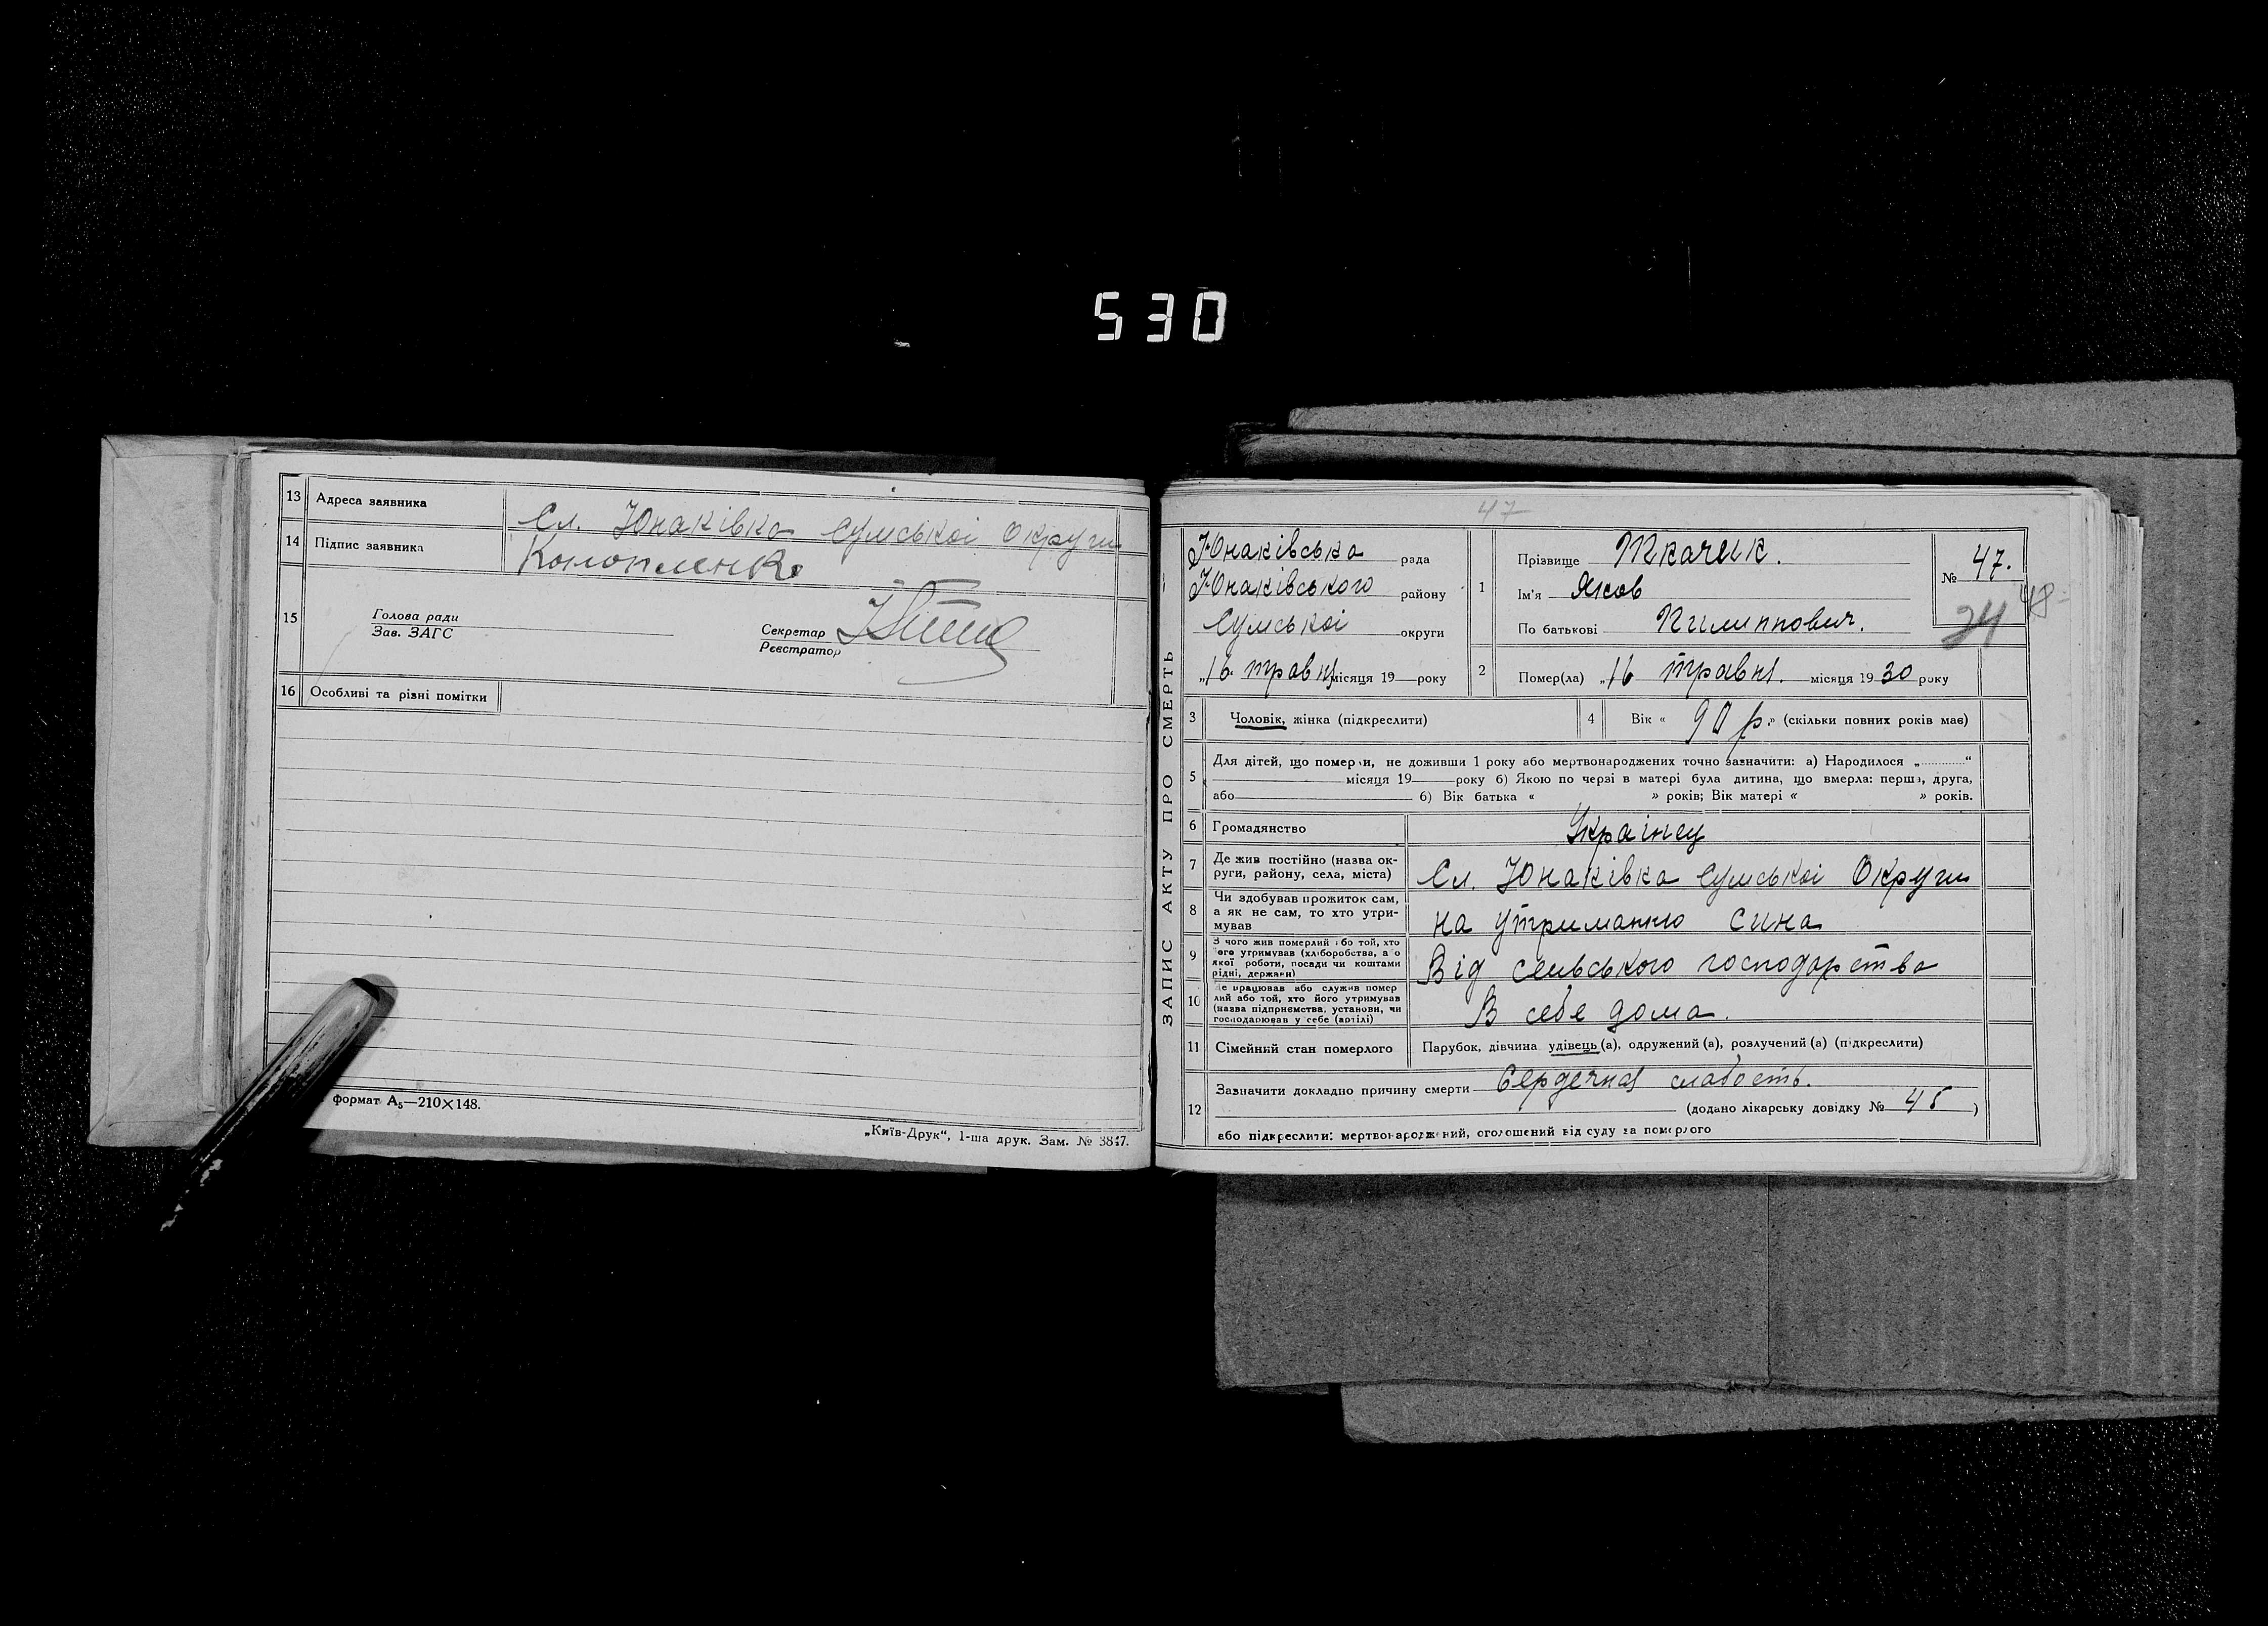 530
13 Адреса заявника Сл. Юнаківка Сумської Округи
14 Підпис заявника Конопленко
15 Голова ради
Зав. ЗАГС
Секретар
Реєстратор
16 Особливі та різні помітки
формат А₅—210×148.
„Київ-Друк“, 1-ша друк. Зам. № 3847.
47
ЗАПИС АКТУ ПРО СМЕРТЬ —
Юнаківська рада
Юнаківського району
Сумської округи
„16“ травня місяця 19 року
1 Прізвище Ткачик.
Ім'я Яков
По батькові Пилиппович.
№ 47.
48
24
2 Помер(ла) „16 травня. місяця 1930 року
3 Чоловік, жінка (підкреслити)
4 Вік « 90 р.» (скільки повних років має)
5 Для дітей, що померли, не доживши 1 року або мертвонароджених точно зазначити: а) Народилося „ “
місяця 19 року б) Якою по черзі в матері була дитина, що вмерла: перша, друга,
або б) Вік батька « » років; Вік матері « » років.
6 Громадянство Українец
7 Де жив постійно (назва ок-
руги, району, села, міста) Сл. Юнаківка Сумської Округи
8 Чи здобував прожиток сам,
а як не сам, то хто утри-
мував на утриманню сина
9 З чого жив померлий або той, хто
його утримував (хліборобства, або
якої роботи, посади чи коштами
рідні, держави) Від сельського господарства
10 Де працював або служив помер
лий або той, хто його утримував
(назва підприємства, установи, чи
господарював у себе (артілі) В себе дома.
11 Сімейний стан померлого Парубок, дівчина удівець (а), одружений (а), розлучений (а) (підкреслити)
12 Зазначити докладно причину смерти Сердечная слабость.
(додано лікарську довідку № 45 )
або підкреслити: мертвонароджений, оголошений від суду за померлого